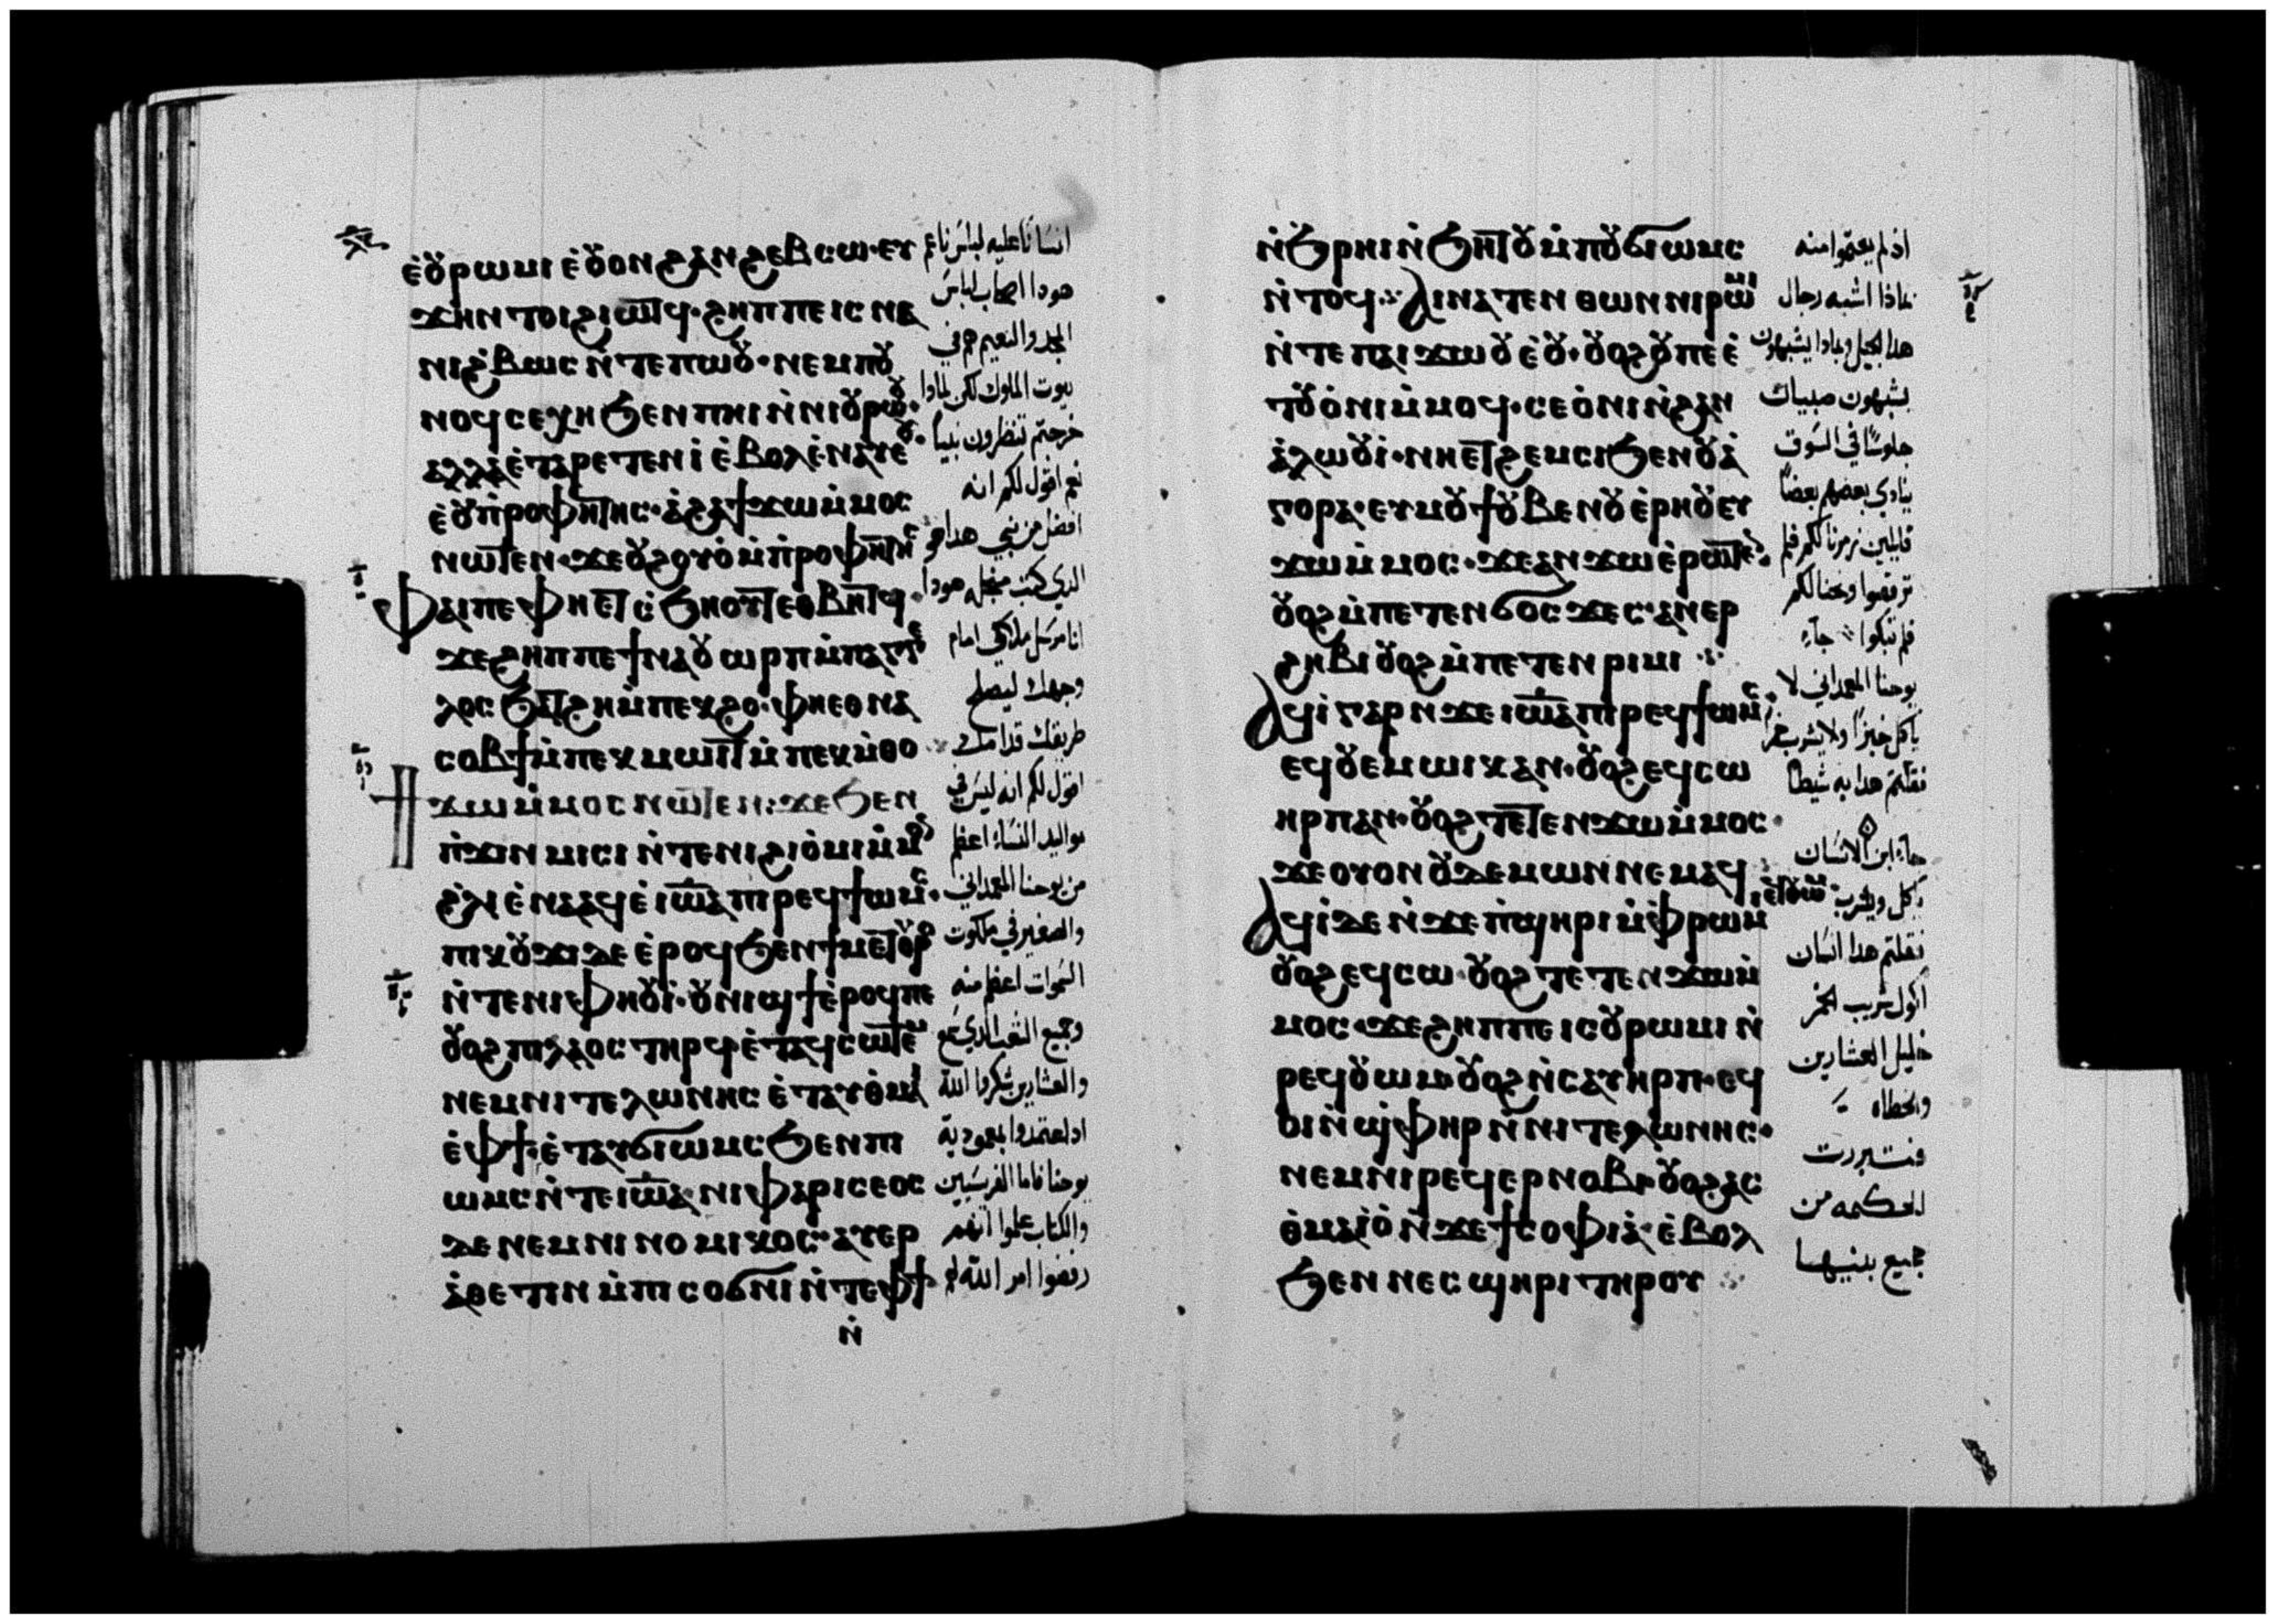 ⲉ̀ⲟⲩⲣⲱⲙⲓ ⲉ̀ⲟⲩⲟⲛ ϩⲁⲛ ϩⲉⲃⲥⲱ· ⲉⲩ
ϫⲏⲛ ⲧⲟⲓ ϩⲓⲱⲧϥ· ϩⲏⲡⲡⲉ ⲓⲥ ⲛⲁ
ⲛⲓϩ̀ⲃⲱⲥ ⲛ̀ⲧⲉ ⲡⲱⲟⲩ· ⲛⲉⲙ ⲡⲟⲩ
ⲛⲟϥ ⲥⲉⲭⲏ ϧⲉⲛ ⲡⲏⲓ ⲛ̀ⲛⲓⲟⲩⲣⲱⲟⲩ·
ⲁⲗⲗⲁ ⲉ̀ⲧⲁⲣⲉⲧⲉⲛⲓ̀ ⲉ̀ⲃⲟⲗ ⲉ̀ⲛⲁⲩ ⲉ̀
ⲉ̀ⲟⲩⲡ̀ⲣⲟⲫⲏⲧⲏⲥ· ⲁ̀ϩⲁ ϯϫⲱ ⲙ̀ⲙⲟⲥ
ⲛⲱⲧⲉⲛ· ϫⲉ ⲟⲩϩⲟⲩⲟ̀ ⲙ̀ⲡ̀ⲣⲟⲫⲏⲧⲏⲥ
ⲫⲁⲓ ⲡⲉ ⲫⲏ ⲉⲧⲥ̀ϧⲏⲟⲩⲧ ⲉⲑⲃⲏⲧϥ·
ϫⲉ ϩⲏⲡⲡⲉ ϯⲛⲁⲟⲩⲱⲣⲡ ⲙ̀ⲡⲁⲁⲅⲅⲉ
ⲗⲟⲥ ϧⲁⲧϩⲏ ⲙ̀ⲡⲉⲕϩⲟ· ⲫⲏ ⲉⲑⲛⲁ
ⲥⲟⲃϯ ⲙ̀ⲡⲉⲕⲙⲱⲓⲧ ⲙ̀ⲡⲉⲕⲙ̀ⲑⲟ
ϯϫⲱ ⲙ̀ⲙⲟⲥ ⲛⲱⲧⲉⲛ: ϫⲉ ϧⲉⲛ
ⲡ̀ϫⲓⲛⲙⲓⲥⲓ ⲛ̀ⲧⲉ ⲛⲓϩⲓⲟ̀ⲙⲓ ⲙ̀ⲙⲟⲛ
ϩ̀ⲗⲓ ⲉ̀ⲛⲁⲁϥ ⲉ̀ⲓⲱⲁ ⲡⲓⲣⲉϥϯⲱⲙⲥ·
ⲡⲓⲕⲟⲩϫⲓ ⲇⲉ ⲉ̀ⲣⲟϥ ϧⲉⲛ ϯⲙⲉⲧⲟⲩⲣⲟ
ⲛ̀ⲧⲉ ⲛⲓⲫⲏⲟⲩⲓ̀· ⲟⲩⲛⲓϣϯ ⲉ̀ⲣⲟϥ ⲡⲉ
ⲟⲩⲟϩ ⲡⲓⲗⲁⲟⲥ ⲧⲏⲣϥ ⲉ̀ⲧⲁϥⲥⲱⲧⲉⲙ
ⲛⲉⲙ ⲛⲓⲧⲉⲗⲱⲛⲏⲥ ⲉ̀ⲧⲁⲩⲑ̀ⲙⲁⲓ
ⲉ̀ⲫϯ· ⲉ̀ⲧⲁⲩϭⲓⲱⲙⲥ ϧⲉⲛ ⲡⲓ
ⲱⲙⲥ ⲛ̀ⲧⲉ ⲓⲱⲁ· ⲛⲓⲫⲁⲣⲓⲥⲉⲟⲥ
ⲇⲉ ⲛⲉⲙ ⲛⲓⲛⲟⲙⲓⲕⲟⲥ· ⲁⲩⲉⲣ
ⲁ̀ⲑⲉⲧⲓⲛ ⲙ̀ⲡⲓⲥⲟϭⲛⲓ ⲛ̀ⲧⲉ ⲫϯ·
ⲛ̀
انسانا عليه لباس ناعم
هودا اصحاب لباس
المجد والنعيم هم في
بيوت الملوك لكن لمادا
خرجتم تنظرون نبيا
نعم اقول لكم انه
افضل من نبي هدا هو
الدي كتب من اجله هودا
انا مرسل ملاكي امام
وجهك ليصلح
طريقك قدامك
اقول لكم انه ليس في
مواليد النساء اعظم
من يوحنا المعمداني
والصغير في ملكوت
السموات اعظم منه
وجميع الشعب الدي سمع
والعشارين شكروا الله
اد اعتمدوا بمعمودية
يوحنا فاما الفريسيين
والكتاب علموا انهم
رفضوا امر الله لهم
ⲛ̀ϧⲣⲏⲓ ⲛ̀ϧⲏⲧⲟⲩ ⲙ̀ⲡⲟⲩϭⲓⲱⲙⲥ
ⲛ̀ⲧⲟϥ: ⲁⲓⲛⲁⲧⲉⲛⲑⲱⲛ ⲛⲓⲣⲱⲙⲓ
ⲛ̀ⲧⲉ ⲡⲁⲓϫⲱⲟⲩ ⲉ̀ⲟⲩ· ⲟⲩⲟϩ ⲟⲩ ⲡⲉ ⲉ̀
ⲧⲟⲩⲟ̀ⲛⲓ ⲙ̀ⲙⲟϥ· ⲥⲉⲟ̀ⲛⲓ ⲛ̀ϩⲁⲛ
ⲁ̀ⲗⲱⲟⲩⲓ̀· ⲛⲏ ⲉⲧϩⲉⲙⲥⲓ ϧⲉⲛ ⲟⲩⲁ̀
ⲅⲟⲣⲁ· ⲉⲩⲙⲟⲩϯ ⲟⲩⲃⲉ ⲛⲟⲩⲉ̀ⲣⲏⲟⲩ ⲉⲩ
ϫⲱ ⲙ̀ⲙⲟⲥ· ϫⲉ ⲁⲛϫⲱ ⲉ̀ⲣⲱⲧⲉⲛ·
ⲟⲩⲟϩ ⲙ̀ⲡⲉⲧⲉⲛϭⲟⲥϫⲉⲥ· ⲁⲛⲉⲣ
ϩⲏⲃⲓ ⲟⲩⲟϩ ⲙ̀ⲡⲉⲧⲉⲛⲣⲓⲙⲓ ⁘
ⲁϥⲓ̀ ⲅⲁⲣ ⲛϫⲉ ⲓⲱⲁ ⲡⲓⲣⲉϥϯⲱⲙⲥ·
ⲉϥⲟⲩⲉⲙ ⲱⲓⲕ ⲁⲛ· ⲟⲩⲟϩ ⲉϥⲥⲱ
ⲏⲣⲡ ⲁⲛ· ⲟⲩⲟϩ ⲧⲉⲧⲉⲛϫⲱ ⲙ̀ⲙⲟⲥ·
ϫⲉ ⲟⲩⲟⲛ ⲟⲩⲇⲉⲙⲱⲛ ⲛⲉⲙⲁϥ
ⲁϥⲓ̀ ⲇⲉ ⲛ̀ϫⲉ ⲡ̀ϣⲏⲣⲓ ⲙ̀ⲫⲣⲱⲙⲓ ⲉϥⲟⲩⲱⲙ
ⲟⲩⲟϩ ⲉϥⲥⲱ· ⲟⲩⲟϩ ⲧⲉⲧⲉⲛϫⲱ ⲙ̀
ⲙⲟⲥ· ϫⲉ ϩⲏⲡⲡⲉ ⲓⲥ ⲟⲩⲣⲱⲙⲓ ⲛ̀
ⲣⲉϥⲟⲩⲱⲙ ⲟⲩⲟϩ ⲛ̀ⲥⲁⲩⲏⲣⲡ· ⲉϥ
ⲟⲓ ⲛ̀ϣ̀ⲫⲏⲣ ⲛ̀ⲛⲓⲧⲉⲗⲱⲛⲏⲥ·
ⲛⲉⲙ ⲛⲓⲣⲉϥⲉⲣⲛⲟⲃⲓ· ⲟⲩⲟϩ ⲁⲥ
ⲑ̀ⲙⲁⲓⲟ̀ ⲛ̀ϫⲉ ϯⲥⲟⲫⲓⲁ̀· ⲉ̀ⲃⲟⲗ
ϧⲉⲛ ⲛⲉⲥϣⲏⲣⲓ ⲧⲏⲣⲟⲩ ⁘
اذ لم يعتمدوا منه
بماذا اشبه رجال
هدا الجيل وبمادا يشبهون
يشبهون صبيان
جلوسا في السوق
ينادي بعضهم بعضا
قايلين زمرنا لكم فلم
ترقصوا ونحنا لكم
فلم تبكوا ⁘ جآء
يوحنا المعمداني لا
ياكل خبزا ولا يشرب خمر
فقلتم هدا به شيطانا
جاء ابن الانسان
ياكل ويشرب
فقلتم هدا انسان
اكول شريب الخمر
خليل العشارين
والخطاه
فتبررت
الحكمه من
جميع بنيها